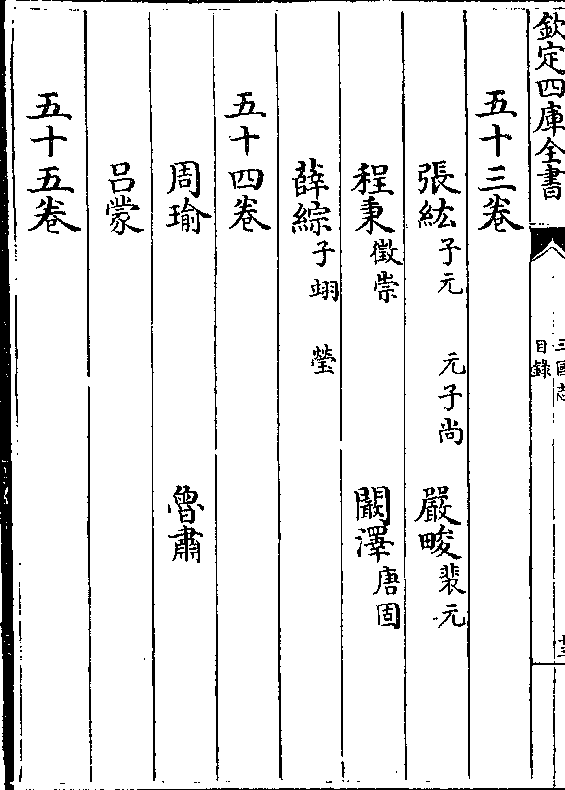 欽定四庫全書
三國志
目錄
五十三卷
張紘子元 元子尚 嚴畯裴元
程秉徵崇 闞澤唐固
薛綜子翊 瑩
五十四卷
周瑜 魯肅
呂蒙
五十五卷